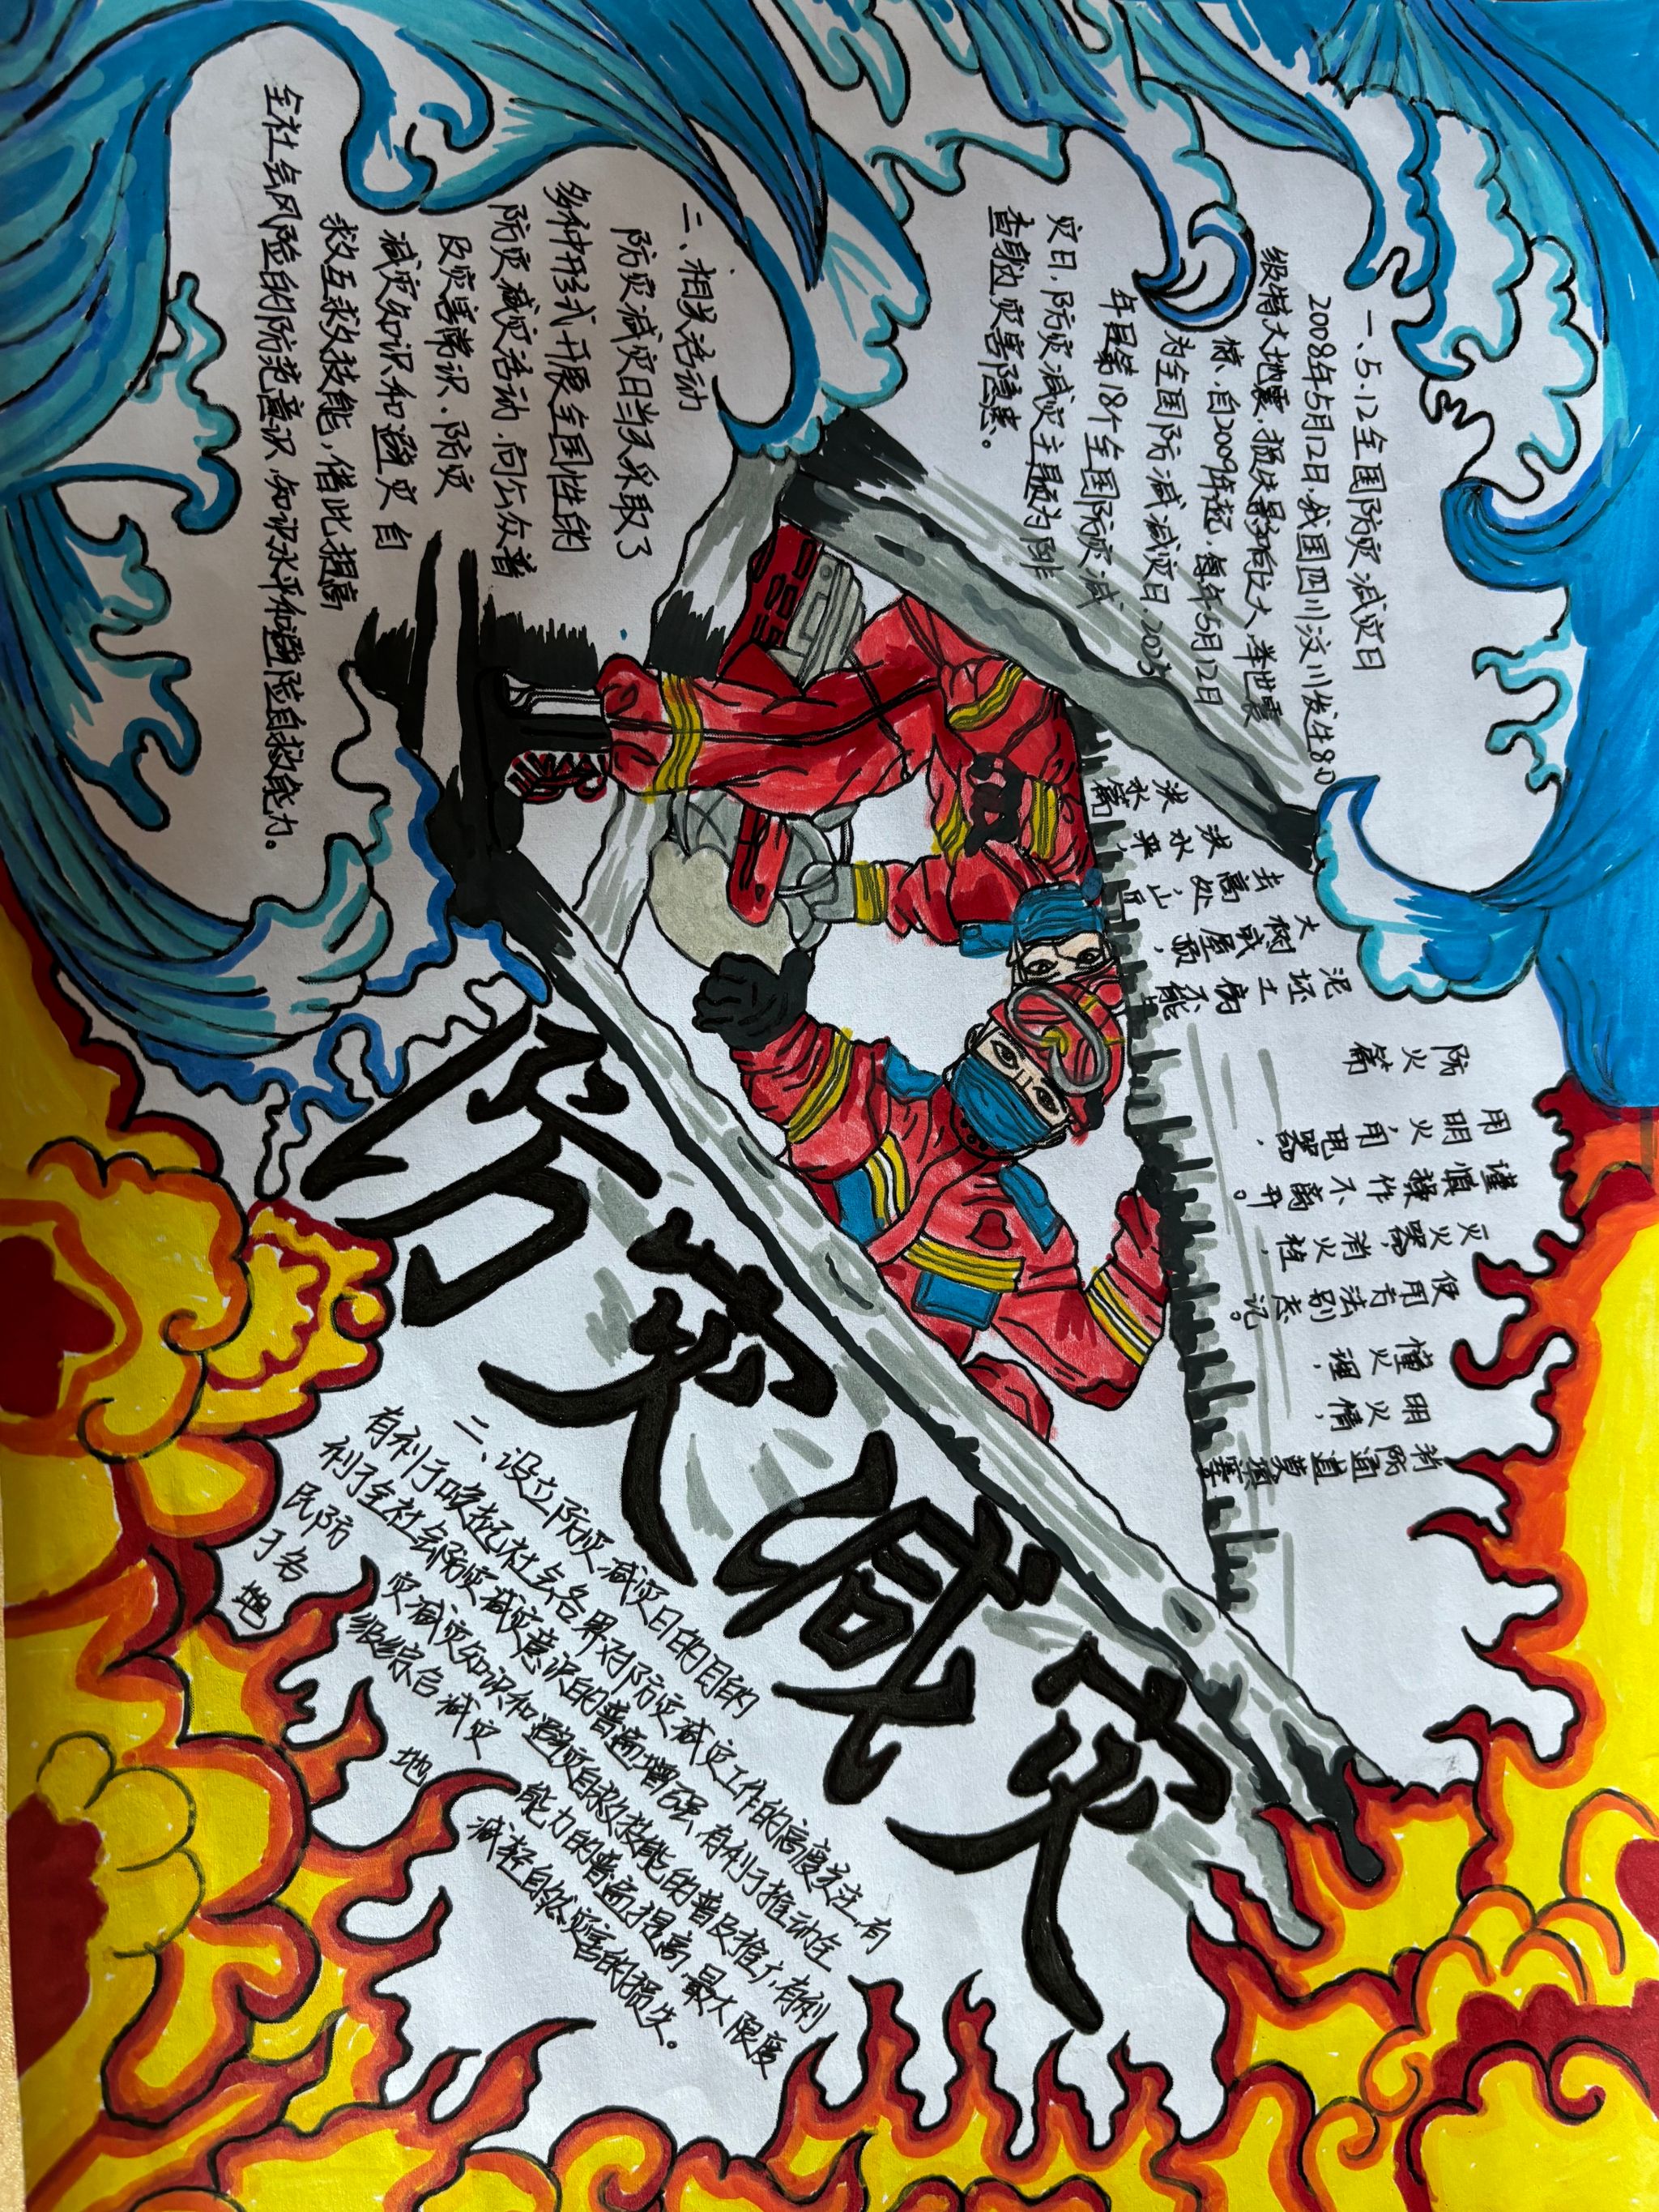 一、5.12全国防灾减灾日
2008年5月12日,我国四川汶川发生8.0
级特大地震,损失影响巨大,举世震
惊.自2009年起,每年5月12日
为全国防减减灾日.2025
年是第18个全国防灾减
灾日,防灾减灾主题为排
查身边灾害隐患。
二、相关活动
防灾减灾日当天采取了
多种形式,开展全国性的
防灾减灾活动,向公众普
及灾害常识、防灾
减灾知识和避灾自
救互救技能,借此提高
全社会风险的防范意识、知识水平和避险自救能力。
洪水篇
洪水来,
去高处,山丘
大树或屋顶,
泥坯土房不能
防火篇
用明火,用电器,
谨慎操作不离开。
灭火器,消火栓,
使用方法别忘记。
懂火理,
明火情,
消防通道莫堵塞
防灾减灾
二、设立防灾减灾日的目的
有利于唤起社会各界对防灾减灾工作的高度关注,有
利于全社会防灾减灾意识的普遍增强,有利于推动全
民防灾减灾知识和避灾自救技能的普及推广,有利
于各级综合减灾能力的普遍提高,最大限度
地减轻自然灾害的损失。